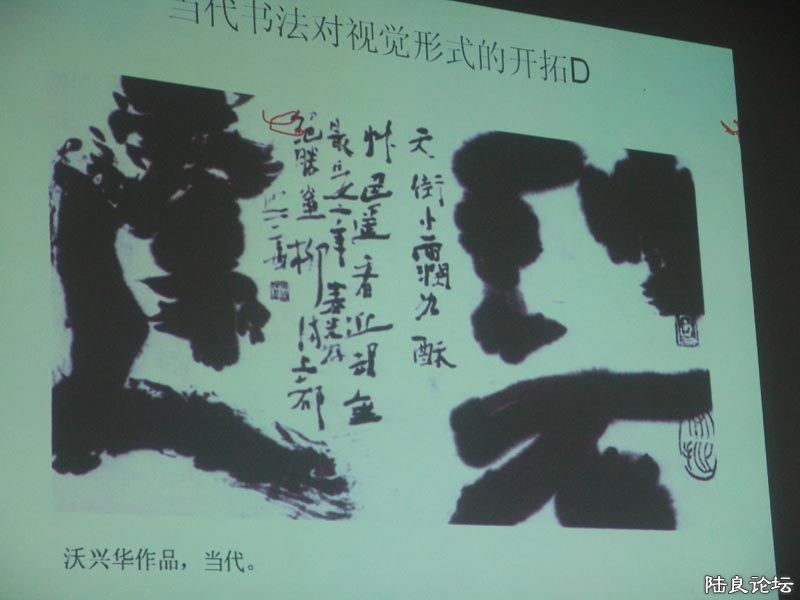 当代书法对视觉形式的开拓D
天街小雨潤如酥
艸色遥看近却無
最是一年春好處
絕勝煙柳滿都
沃兴华作品，当代。
陆良论坛